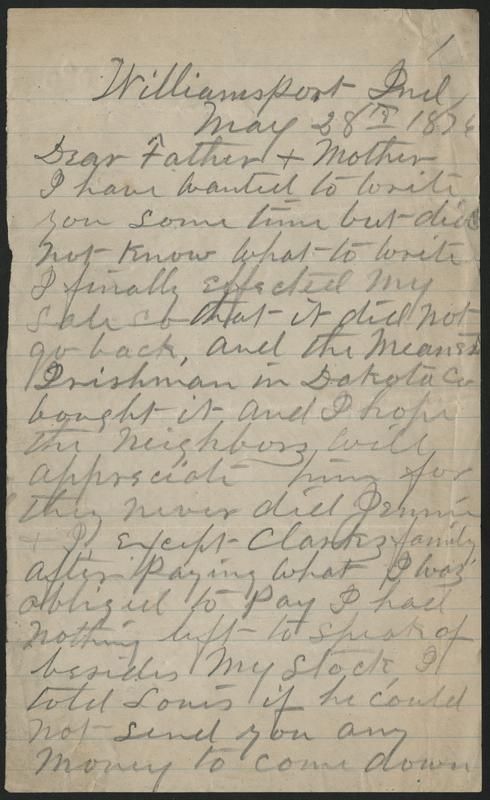 1
Williamsport Ind
May 28th 1876
Dear Father + Mother
I have wanted to write
you some time but did
not know what to write
I finally effected my
sale so that it did not
go back, and the meanest
Irishman in Dakota Co
bought it and I hope
the neighbors will
appreciate him for
they never did Jennie
+ I, except Clarks family
after paying what I was
obliged to pay I had
nothing left to speak of
besides my stock, I
told Louis if he could
not send you any
money to come down